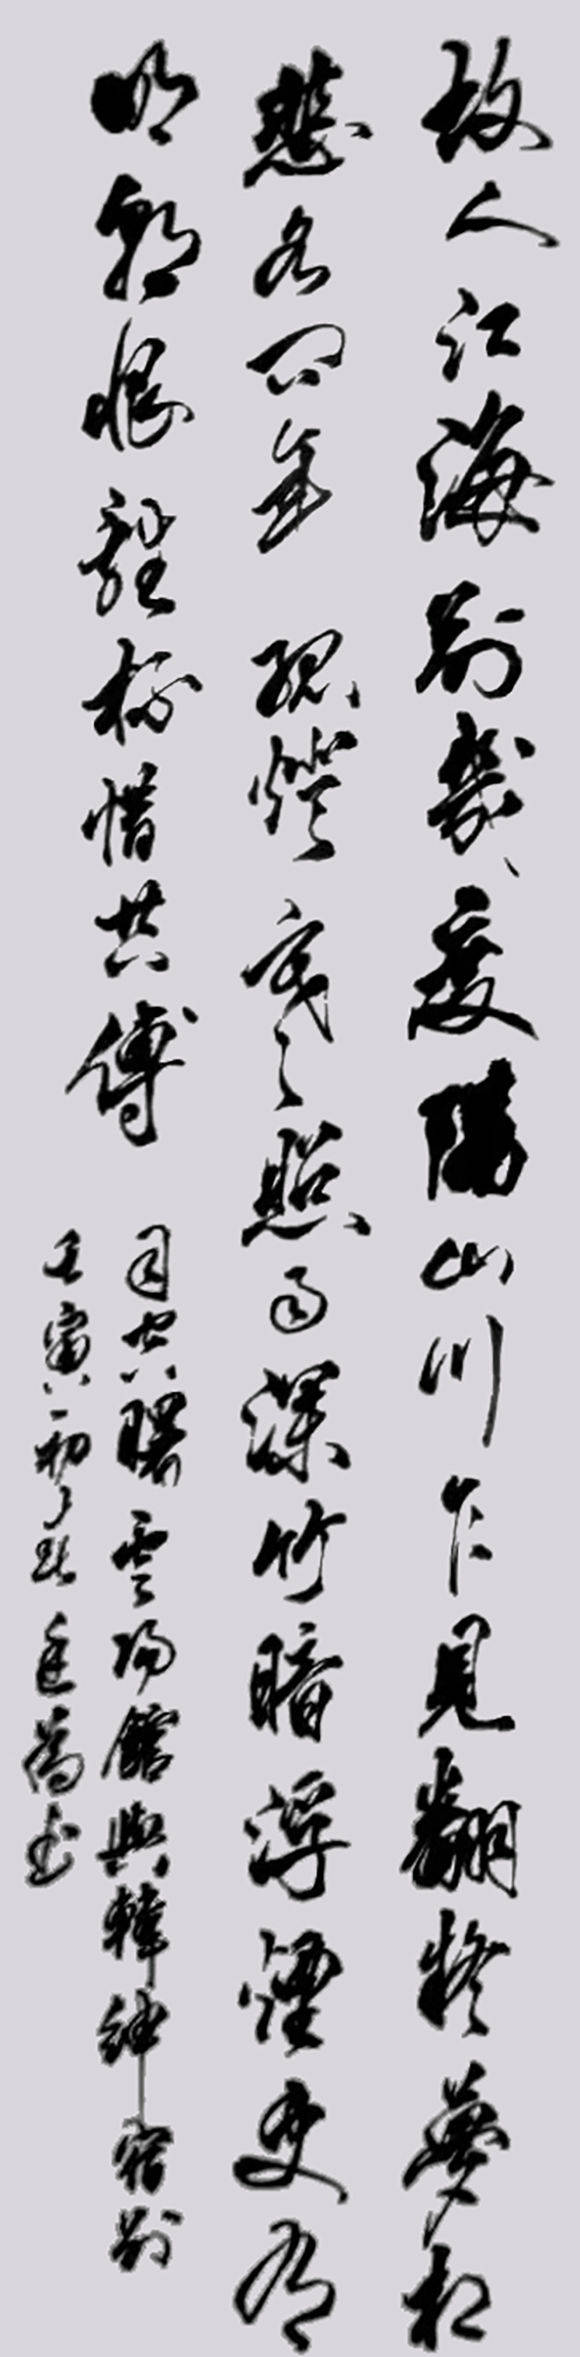 故人江海別幾度隔山川乍見翻疑夢相
悲各問年孤燈寒照雨深竹暗浮煙更有
明朝恨離杯惜共傳
司空曙雲陽館與韓紳宿別
壬寅初